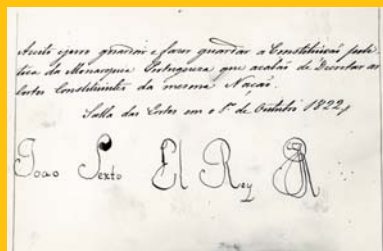 Aceito e juro guardar e fazer guardar a Constituição poli-
tica da Monarquia Portugueza que acabão de Decretar as
Cortes Constituintes da mesma Nação.
Salla das Cortes em o 1º de Outubro 1822,
Joao Sexto El Rey